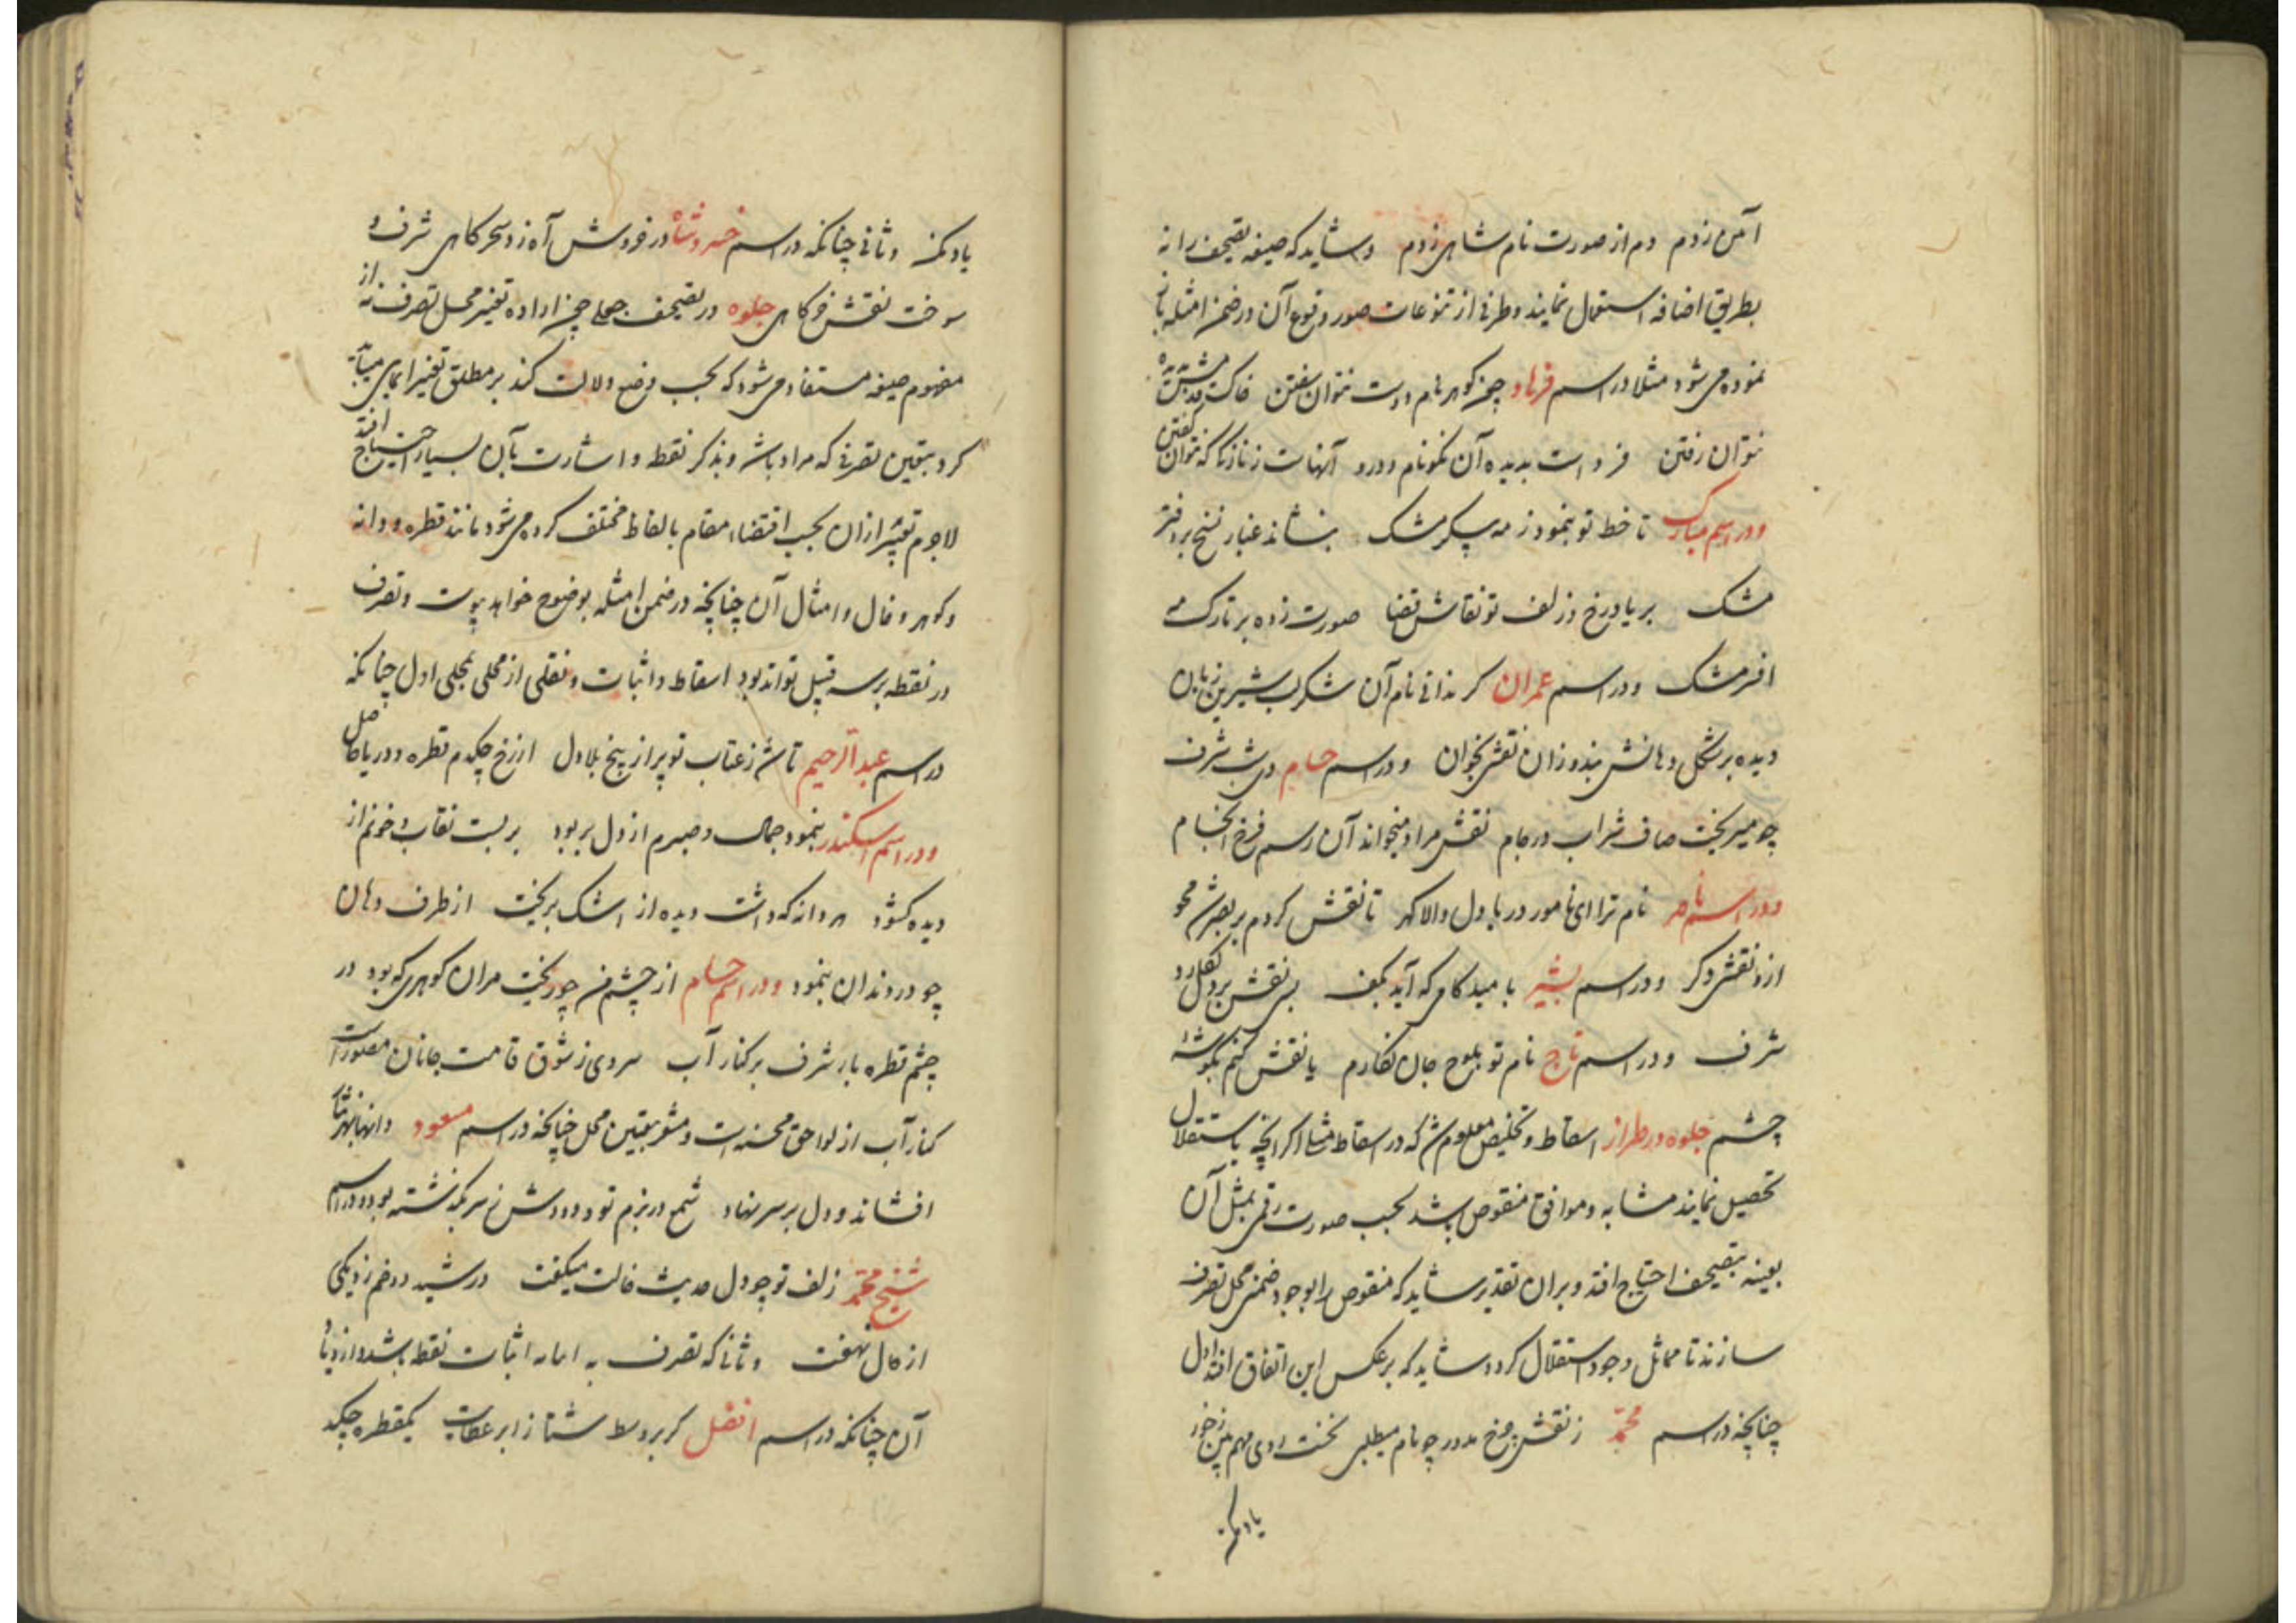 زدم دم از صورت نام شاهی زدم و شاید که صیغه تصحیف را نه
بطریق اضافه استعمال نمایند و طرفی از تنوعات صور وقوع آن در ضمن امثله
نموده می شود مثلا در اسم فرهاد چون گوهر نام دوست نتوان سفتن
نتوان رفتن فرد است بدیده آن نکونام و درو نتوان گفتن
و در اسم مبارک تا خط تو بنمود ز مه پیکر مشک بنشاند غبار نسخ بر دفتر
مشک بر یاد رخ و زلف تو نقاش قضا صورت زده بر تارک مه
افسر مشک و در اسم عمران کر ندانی نام آن شکر لب شیرین زبان
دیده بر شکل دهانش بند و زان نقش بخوان و در اسم حسام شرف
چو میریخت صاف شراب در جام نقش مراد میخواند آن رسم فرخ انجام
و در اسم ناصر نام ترا ای نامور دریا دل والا گهر تا نقش کردم بر بصر شد محو
ازو نقش دگر و در اسم بشیر با مید کامی که آید بکف بسی نقش بر دل
شرف و در اسم تاج نام تو بلوح جان نگارم یا نقش کنم بگوشهٔ
چشم جلوه در طراز اسقاط و تخلیص معلوم شد که در اسقاط مثلی اگر آنچه باستقلال
تحصیل نمایند مشابه و موافق منقوص باشد بحسب صورت رقمی بمثل آن
بعینه بتصحیف احتیاج افتد و بران تقدیر شاید که منقوص را بوجود ضمنی محل تصرف
سازند تا مماثل وجود استقلال گردد و شاید که بر عکس این اتفاق افتد اول
چنانچه در اسم محمد ز نقش چرخ مدور چو نام میطلبی نخست روی
یاد کن
یاد کن و ثانی چنانکه در اسم خسرو شاه در فروش آه زد سحرگاهی شرف و
سوخت نقش خرگاهی جلوه در تصحیف جعلی چون اراده تغییر محل تصرف نه از
مفهوم صیغه مستفاد می شود که بحسب وضع دلالت کند بر مطلق تغییر
کرد بتعیین تصرفی که مراد باشد و بذکر نقطه و اشارت بآن بسیار احتیاج افتد
لاجرم تعبیر ازان بحسب اقتضاء مقام بالفاظ مختلف کرده می شود مانند قطره و دانه
و گوهر و خال و امثال آن چنانچه در ضمن امثله بوضوح خواهد پیوست و تصرف
در نقطه بر سه قبیل تواند بود اسقاط و اثبات و نقلی از محلی بمحلی اول چنانکه
در اسم عبد الرحیم تا شد ز عتاب تو پر از پیچ بلا دل از رخ چکدم قطره و دریا حاصل
و در اسم اسکندر بنمود جمال و صبرم از دل بربود بر بست نقاب و خونم از
دیده گشود هر دانه که داشت دیده از اشک بریخت از طرف دهان
چو در دندان بنمود و در اسم حسام از چشم من چو ریخت مران گوهری که بود در
چشم قطره بار شرف بر کنار آب سروی ز شوق قامت جانان
کنار آب از لواحق محسنه است و مشعر بتعیین محل چنانچه در اسم مسعود
افشاند و دل بر سر نهاد شمع در بزم تو و دودش ز سر بگذشته بود و در اسم
شیخ محمد زلف تو چو دل حدیث خالت میگفت در شد دو خم ز یکی
از خال نهفت و ثانی که تصرف به اثبات نقطه باشد و ازدیاد
آن چنانکه در اسم افضل گر بر وسط شتا ز ابر عطایت یکقطره چکد